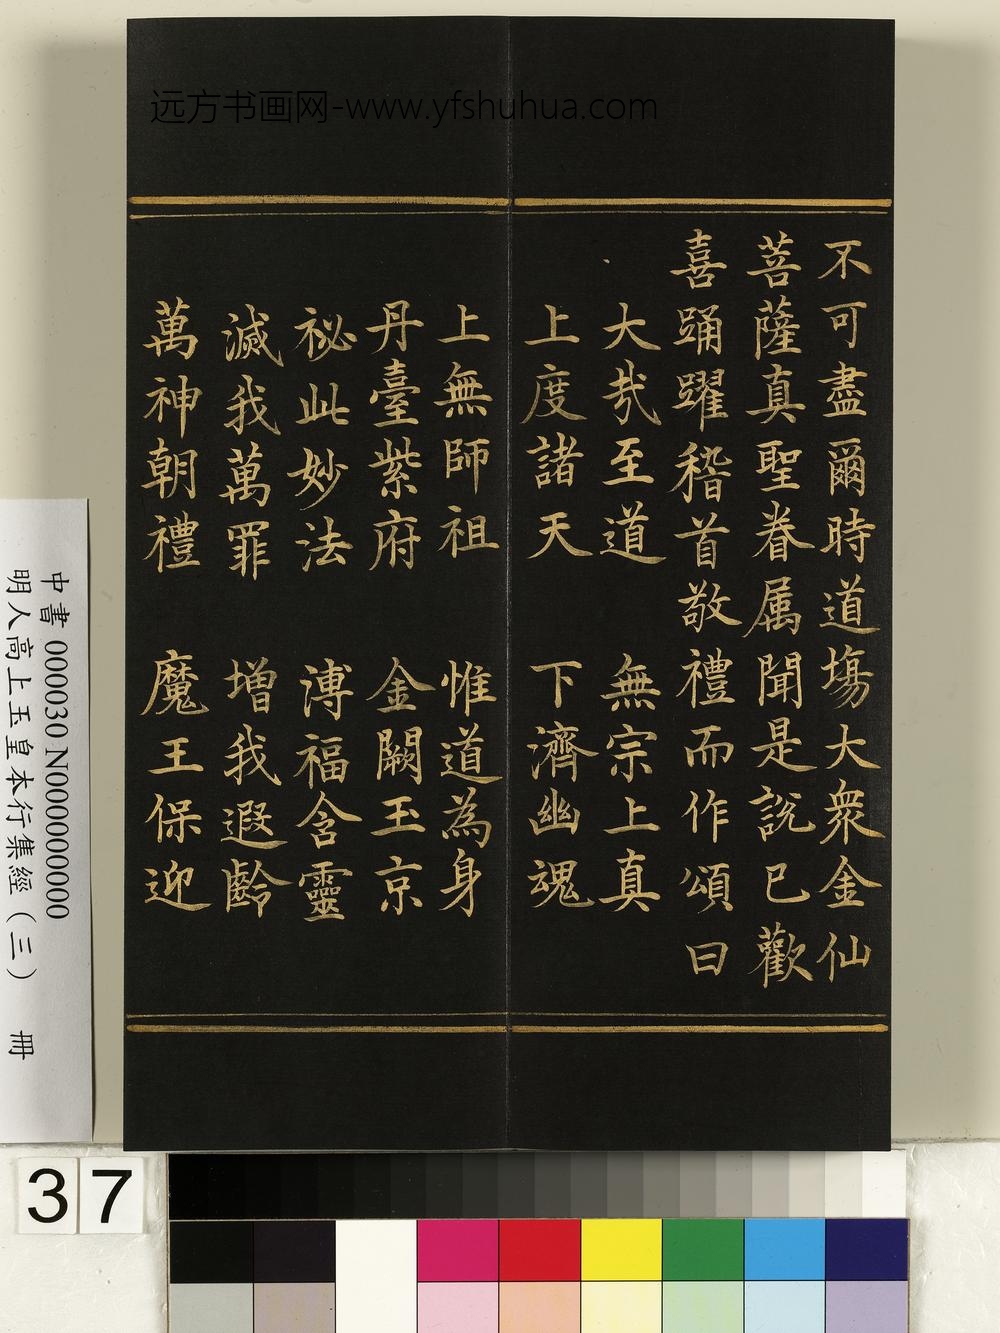 远方书画网-www.yfshuhua.com
不可盡爾時道場大衆金仙
菩薩真聖眷属聞是説已歡
喜踊躍稽首敬禮而作頌曰
大㢤至道 無宗上真
上度諸天 下濟幽魂
上無師祖 惟道為身
丹臺紫府 金闕玉京
祕此妙法 溥福含靈
滅我萬罪 增我遐齡
萬神朝禮 魔王保迎
中書 000030 N000000000
明人高上玉皇本行集經（三） 冊
37